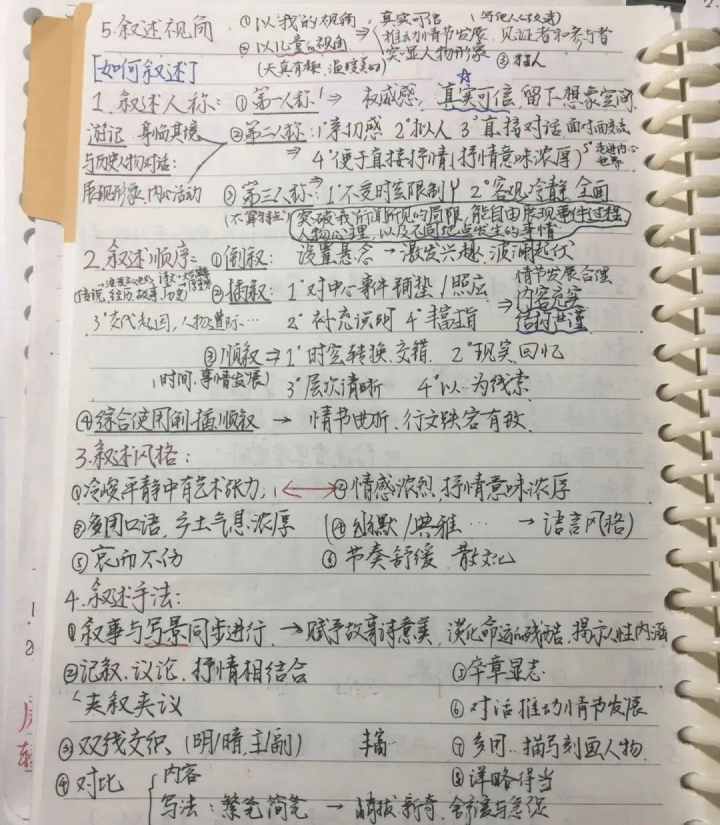 5.叙述视角 ①以我的视角 真实可信
②以儿童的视角 推动情节发展、见证者和参与者
(天真有趣、温暖美好) 突显人物形象 ③
[如何叙述]
1.叙述人称:①第一人称 ⇒ 权威感,真实可信 留下想象空间
游记:身临其境 ②第二人称:1°亲切感 2°拟人 3°直接对话 面对面交流
与历史人物对话: ⇒ 4°便于直接抒情(抒情意味浓厚) 5°走进内心世界
展现形象、内心活动 ③第三人称:⇒ 1°不受时空限制 2°客观冷静 全面
突破我所闻所见的局限,能自由展现事件过程
人物心理,以及不同地点发生的事情
2.叙述顺序:①倒叙: 设置悬念 → 激发兴趣、波澜起伏
传说、经历、故事、历史 ②插叙: 1°对中心事件铺垫/照应 情节发展合理
3°交代起因,人物 … 2°补充说明 4°丰富 ⇒ 内容充实
结构严谨
③顺叙 ⇒ 1°时空转换、交错 2°现实、回忆
(时间、事情发展) 3°层次清晰 4°以…为线索
④综合使用倒、插、顺叙 → 情节曲折、行文跌宕有致
3.叙述风格:
①冷峻平静中有艺术张力; ②情感浓烈、抒情意味浓厚
③多用口语,乡土气息浓厚 (④幽默/典雅… → 语言风格)
⑤哀而不伤 ⑥节奏舒缓、散文化
4.叙述手法:
①叙事与写景同步进行. → 赋予故事诗意美,淡化命运的残酷、揭示人性内涵
②记叙、议论、抒情相结合 ⑤卒章显志
夹叙夹议 ⑥对话推动情节发展
③双线交织、(明/暗,主/副) 丰富 ⑦多用…描写刻画人物
④对比 内容 ⑧详略得当
写法:繁笔简笔 → 峭拔新奇、舒缓与急促